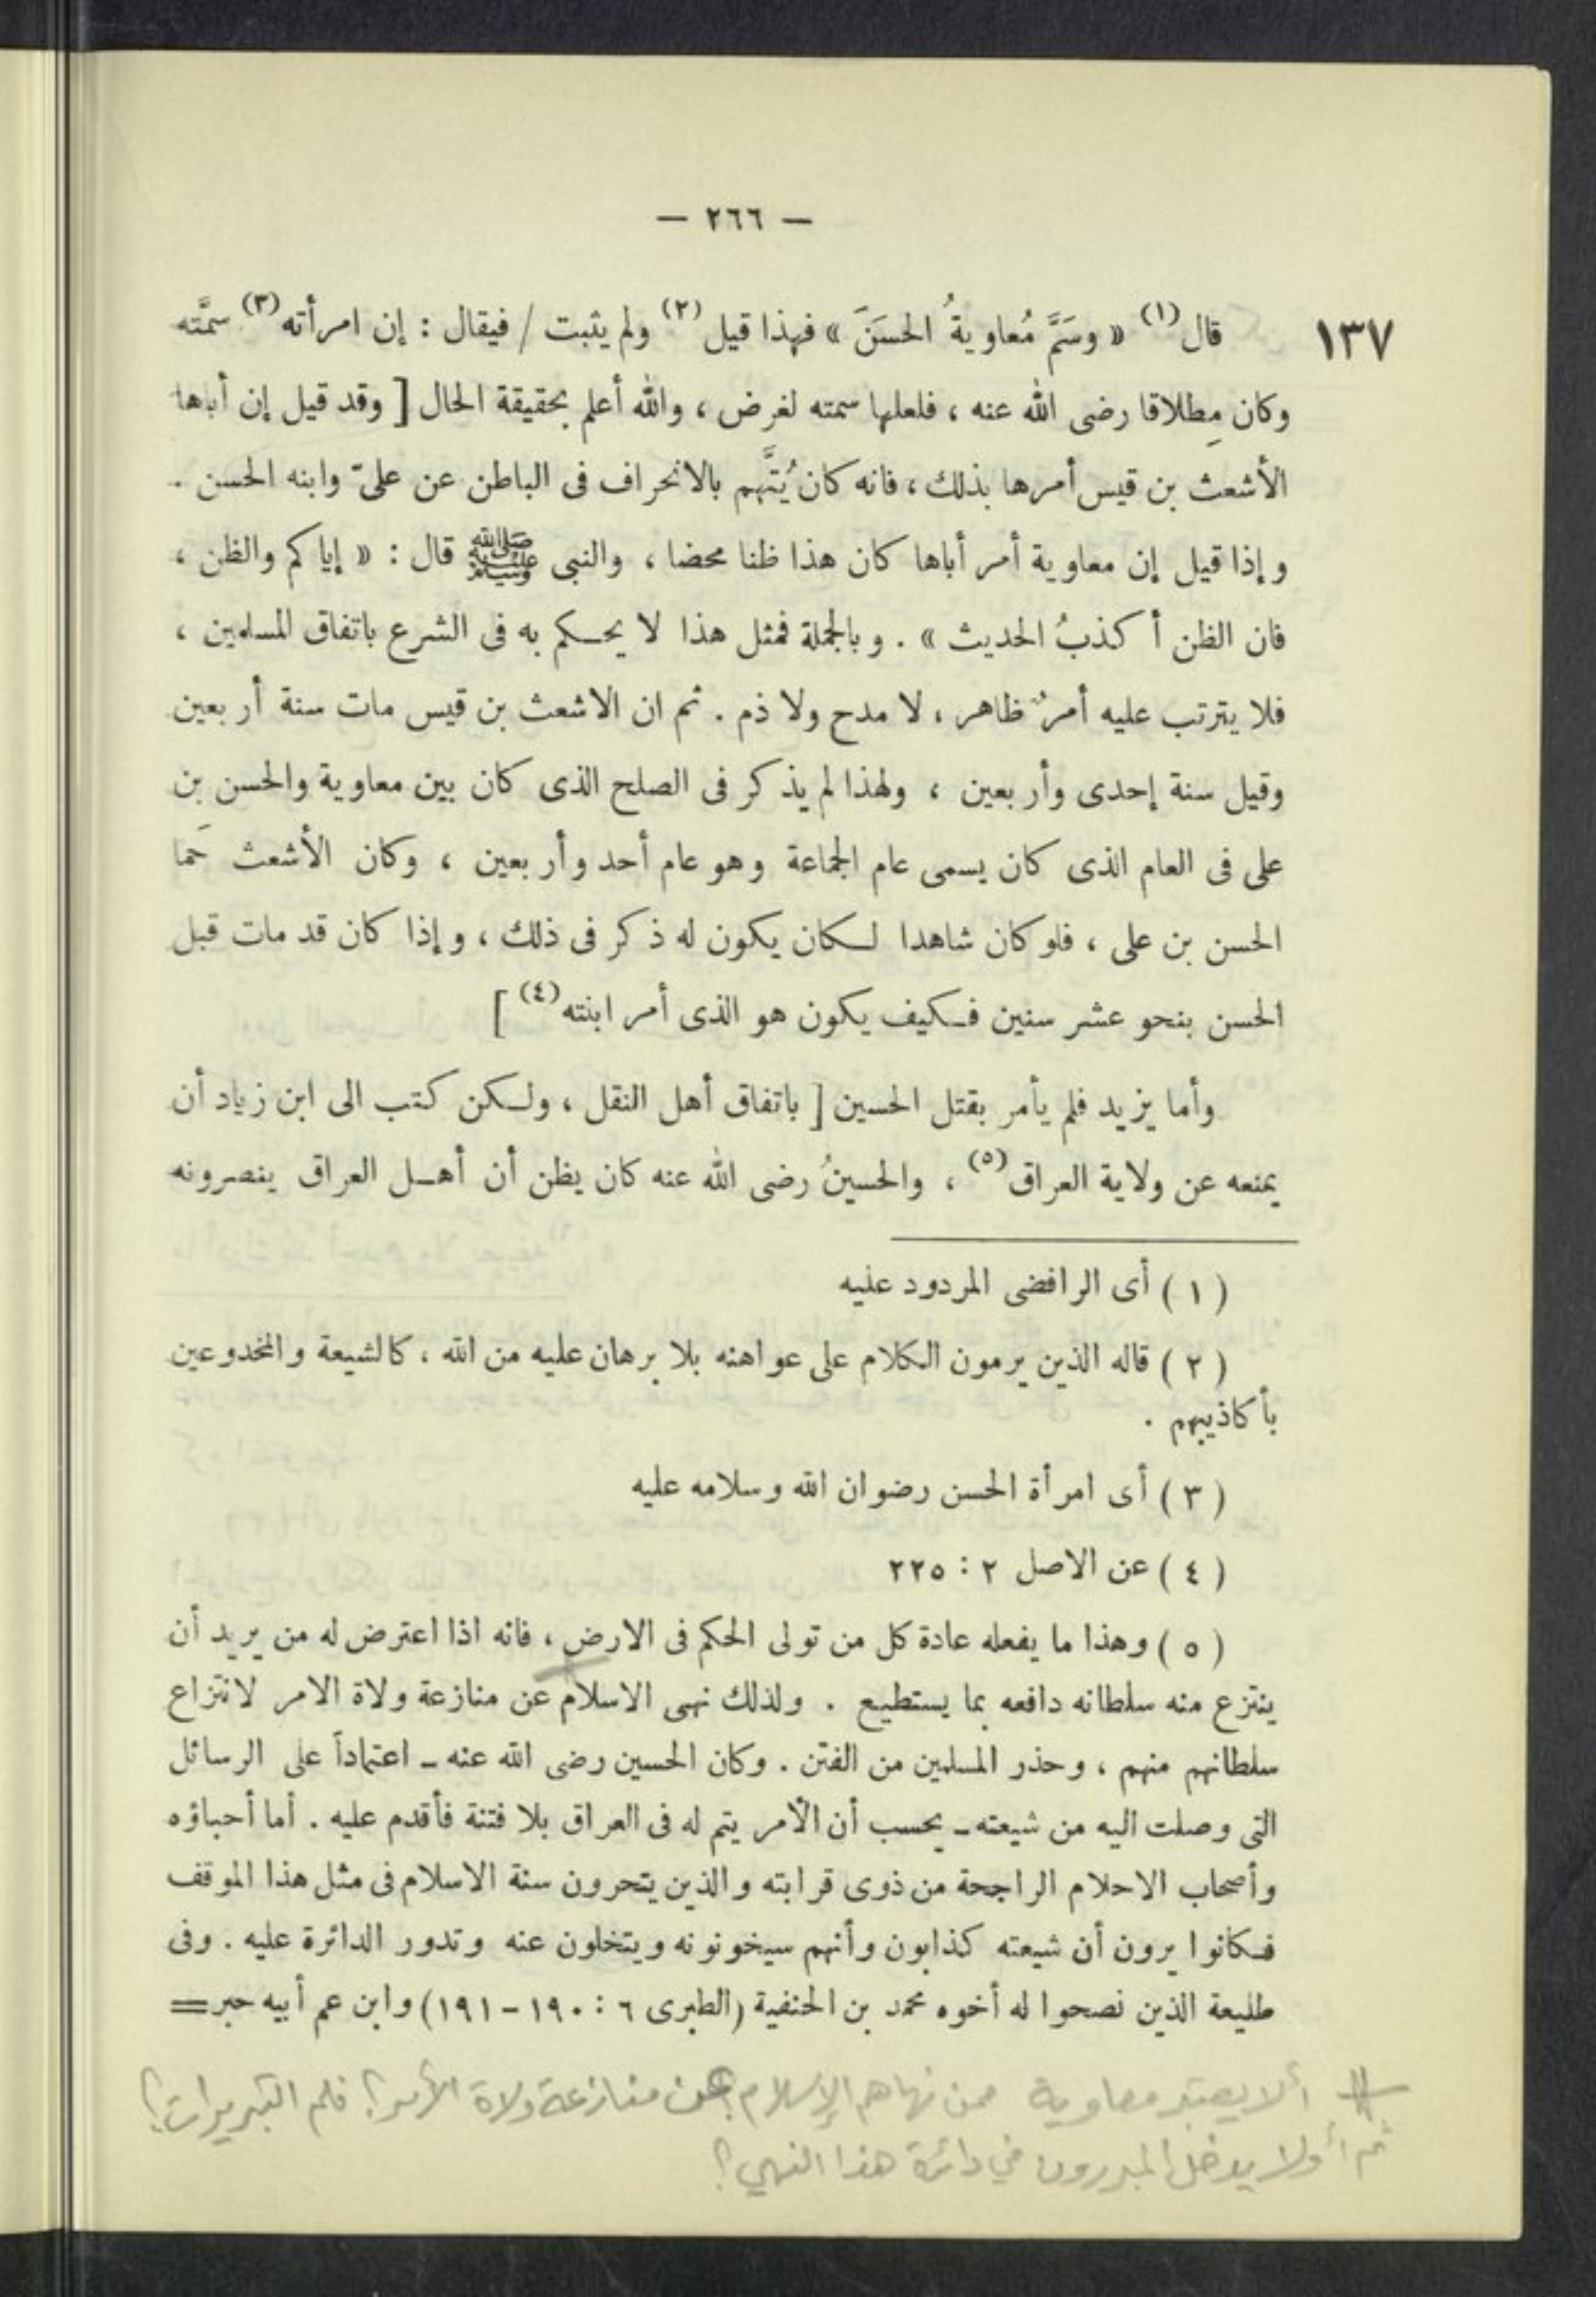 — ٢٦٦ —
١٣٧
قال (١) « وسَمَّ مُعاويةُ الحسَنَ » فهذا قيل (٢) ولم يثبت / فيقال : إن امرأته (٣) سمَّته
وكان مِطلاقا رضى الله عنه ، فلعلها سمته لغرض ، والله أعلم بحقيقة الحال [ وقد قيل إن أباها
الأشعث بن قيس أمرها بذلك ، فانه كان يُتَّهم بالانحراف فى الباطن عن علىّ وابنه الحسن .
وإذا قيل إن معاوية أمر أباها كان هذا ظنا محضا ، والنبى ﷺ قال : « إياكم والظن ،
فان الظن أكذبُ الحديث » . وبالجملة فمثل هذا لا يحـكم به فى الشرع باتفاق المسلمين ،
فلا يترتب عليه أمرٌ ظاهر ، لا مدح ولا ذم . ثم ان الاشعث بن قيس مات سنة أربعين
وقيل سنة إحدى وأربعين ، ولهذا لم يذكر فى الصلح الذى كان بين معاوية والحسن بن
على فى العام الذى كان يسمى عام الجماعة وهو عام أحد وأربعين ، وكان الأشعث حَما
الحسن بن على ، فلو كان شاهدا لـكان يكون له ذكر فى ذلك ، وإذا كان قد مات قبل
الحسن بنحو عشر سنين فـكيف يكون هو الذى أمر ابنته (٤) ]
وأما يزيد فلم يأمر بقتل الحسين [ باتفاق أهل النقل ، ولـكن كتب الى ابن زياد أن
يمنعه عن ولاية العراق (٥) ، والحسينُ رضى الله عنه كان يظن أن أهـل العراق ينصرونه
( ١ ) أى الرافضى المردود عليه
( ٢ ) قاله الذين يرمون الكلام على عواهنه بلا برهان عليه من الله ، كالشيعة والمخدوعين
بأكاذيبهم .
( ٣ ) أى امرأة الحسن رضوان الله وسلامه عليه
( ٤ ) عن الاصل ٢ : ٢٢٥
( ٥ ) وهذا ما يفعله عادة كل من تولى الحكم فى الارض ، فانه اذا اعترض له من يريد أن
ينتزع منه سلطانه دافعه بما يستطيع . ولذلك نهى الاسلام عن منازعة ولاة الامر لانتزاع
سلطانهم منهم ، وحذر المسلمين من الفتن . وكان الحسين رضى الله عنه ـ اعتماداً على الرسائل
التى وصلت اليه من شيعته ـ يحسب أن الأمر يتم له فى العراق بلا فتنة فأقدم عليه . أما أحباؤه
وأصحاب الاحلام الراجحة من ذوى قرابته والذين يتحرون سنة الاسلام فى مثل هذا الموقف
فـكانوا يرون أن شيعته كذابون وأنهم سيخونونه ويتخلون عنه وتدور الدائرة عليه . وفى
طليعة الذين نصحوا له أخوه محمد بن الحنفية (الطبرى ٦ : ١٩٠ - ١٩١) وابن عم أبيه حبر =
ألا يعتبر معاوية ممن نهاهم الإسلام عن منازعة ولاة الأمر؟ فلم التبريرات؟
ثم أولا يدخل المبررون في دائرة هذا النهي؟